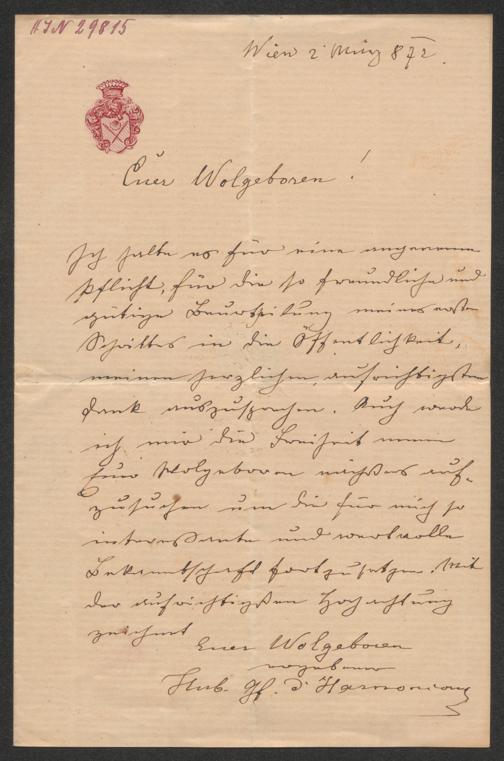 HIN 29815
Wien 2 März 872.
Euer Wolgeboren!
Ich halte es für eine angenehme
Pflicht, für die so freundliche und
gütige Beurtheilung meines ersten
Schrittes in die Öffentlichkeit,
meinen herzlichen, aufrichtigsten
Dank auszusprechen. Auch werde
ich mir die Freiheit nemen
Euer Wolgeboren nächstens auf-
zusuchen um die für mich so
interessante und wertvolle
Bekanntschaft fortzusetzen. Mit
der aufrichtigsten Hochachtung
zeichnet
Euer Wolgeboren
ergebener
Hub. Gf. d'Harnoncourt